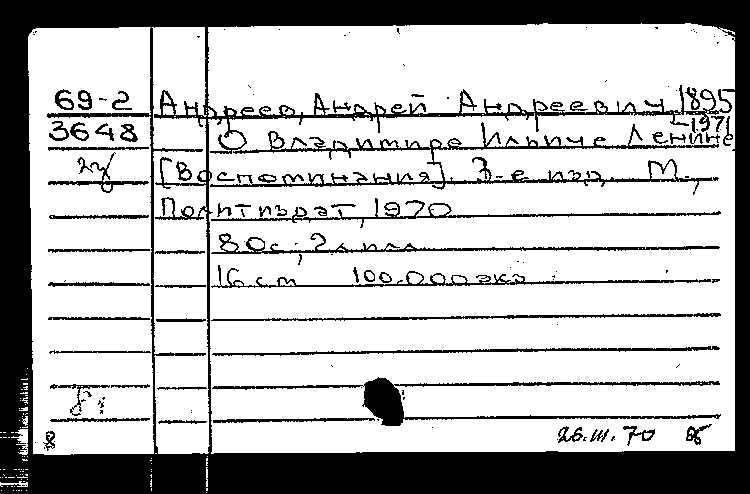 69-2 Андреев, Андрей Андреевич 1895
-1971
3648 О Владимире Ильиче Ленине
[Воспоминания]. 3-е изд. М.,
Политиздат, 1970
80с; 2л илл
16 см 100.000 экз
8
26.III.70